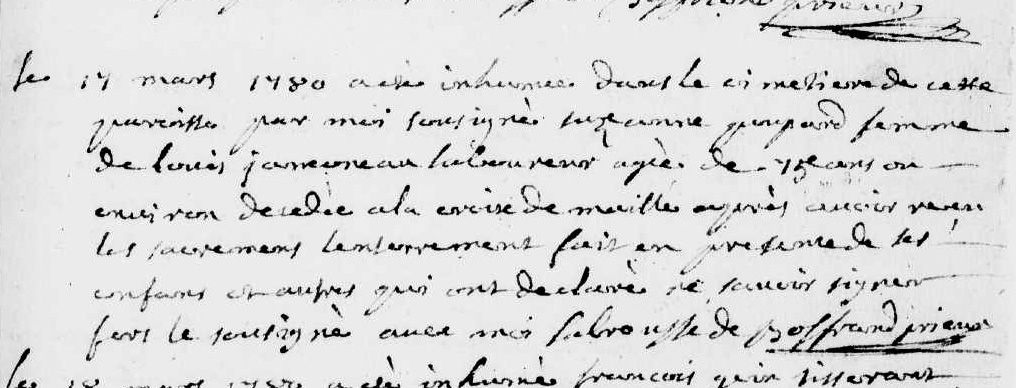 prieur
le 17 mars 1780 a eté inhumée dans le cimetiere de cette
paroisse par moi sousigné suzanne poupard femme
de louis janoneau laboureur agée de 75 ans ou
environ decedée a la croix de maillé après avoir reçu
les sacremens lenterrement fait en presence de ses
enfans et autres qui ont declaré ne savoir signer
fors le sousigné avec moi labrousse de Boffrand prieur
le 18 mars 1780 a eté inhumé francois tisserant